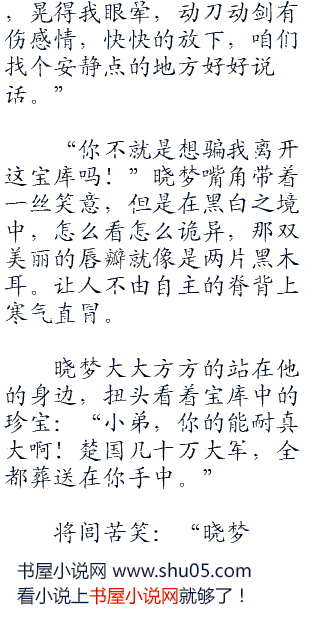 ，晃得我眼晕，动刀动剑有
伤感情，快快的放下，咱们
找个安静点的地方好好说
话。”
“你不就是想骗我离开
这宝库吗！”晓梦嘴角带着
一丝笑意，但是在黑白之境
中，怎么看怎么诡异，那双
美丽的唇瓣就像是两片黑木
耳。让人不由自主的脊背上
寒气直冒。
晓梦大大方方的站在他
的身边，扭头看着宝库中的
珍宝：“小弟，你的能耐真
大啊！楚国几十万大军，全
都葬送在你手中。”
将闾苦笑：“晓梦
书屋小说网 www.shu05.com
看小说上书屋小说网就够了！